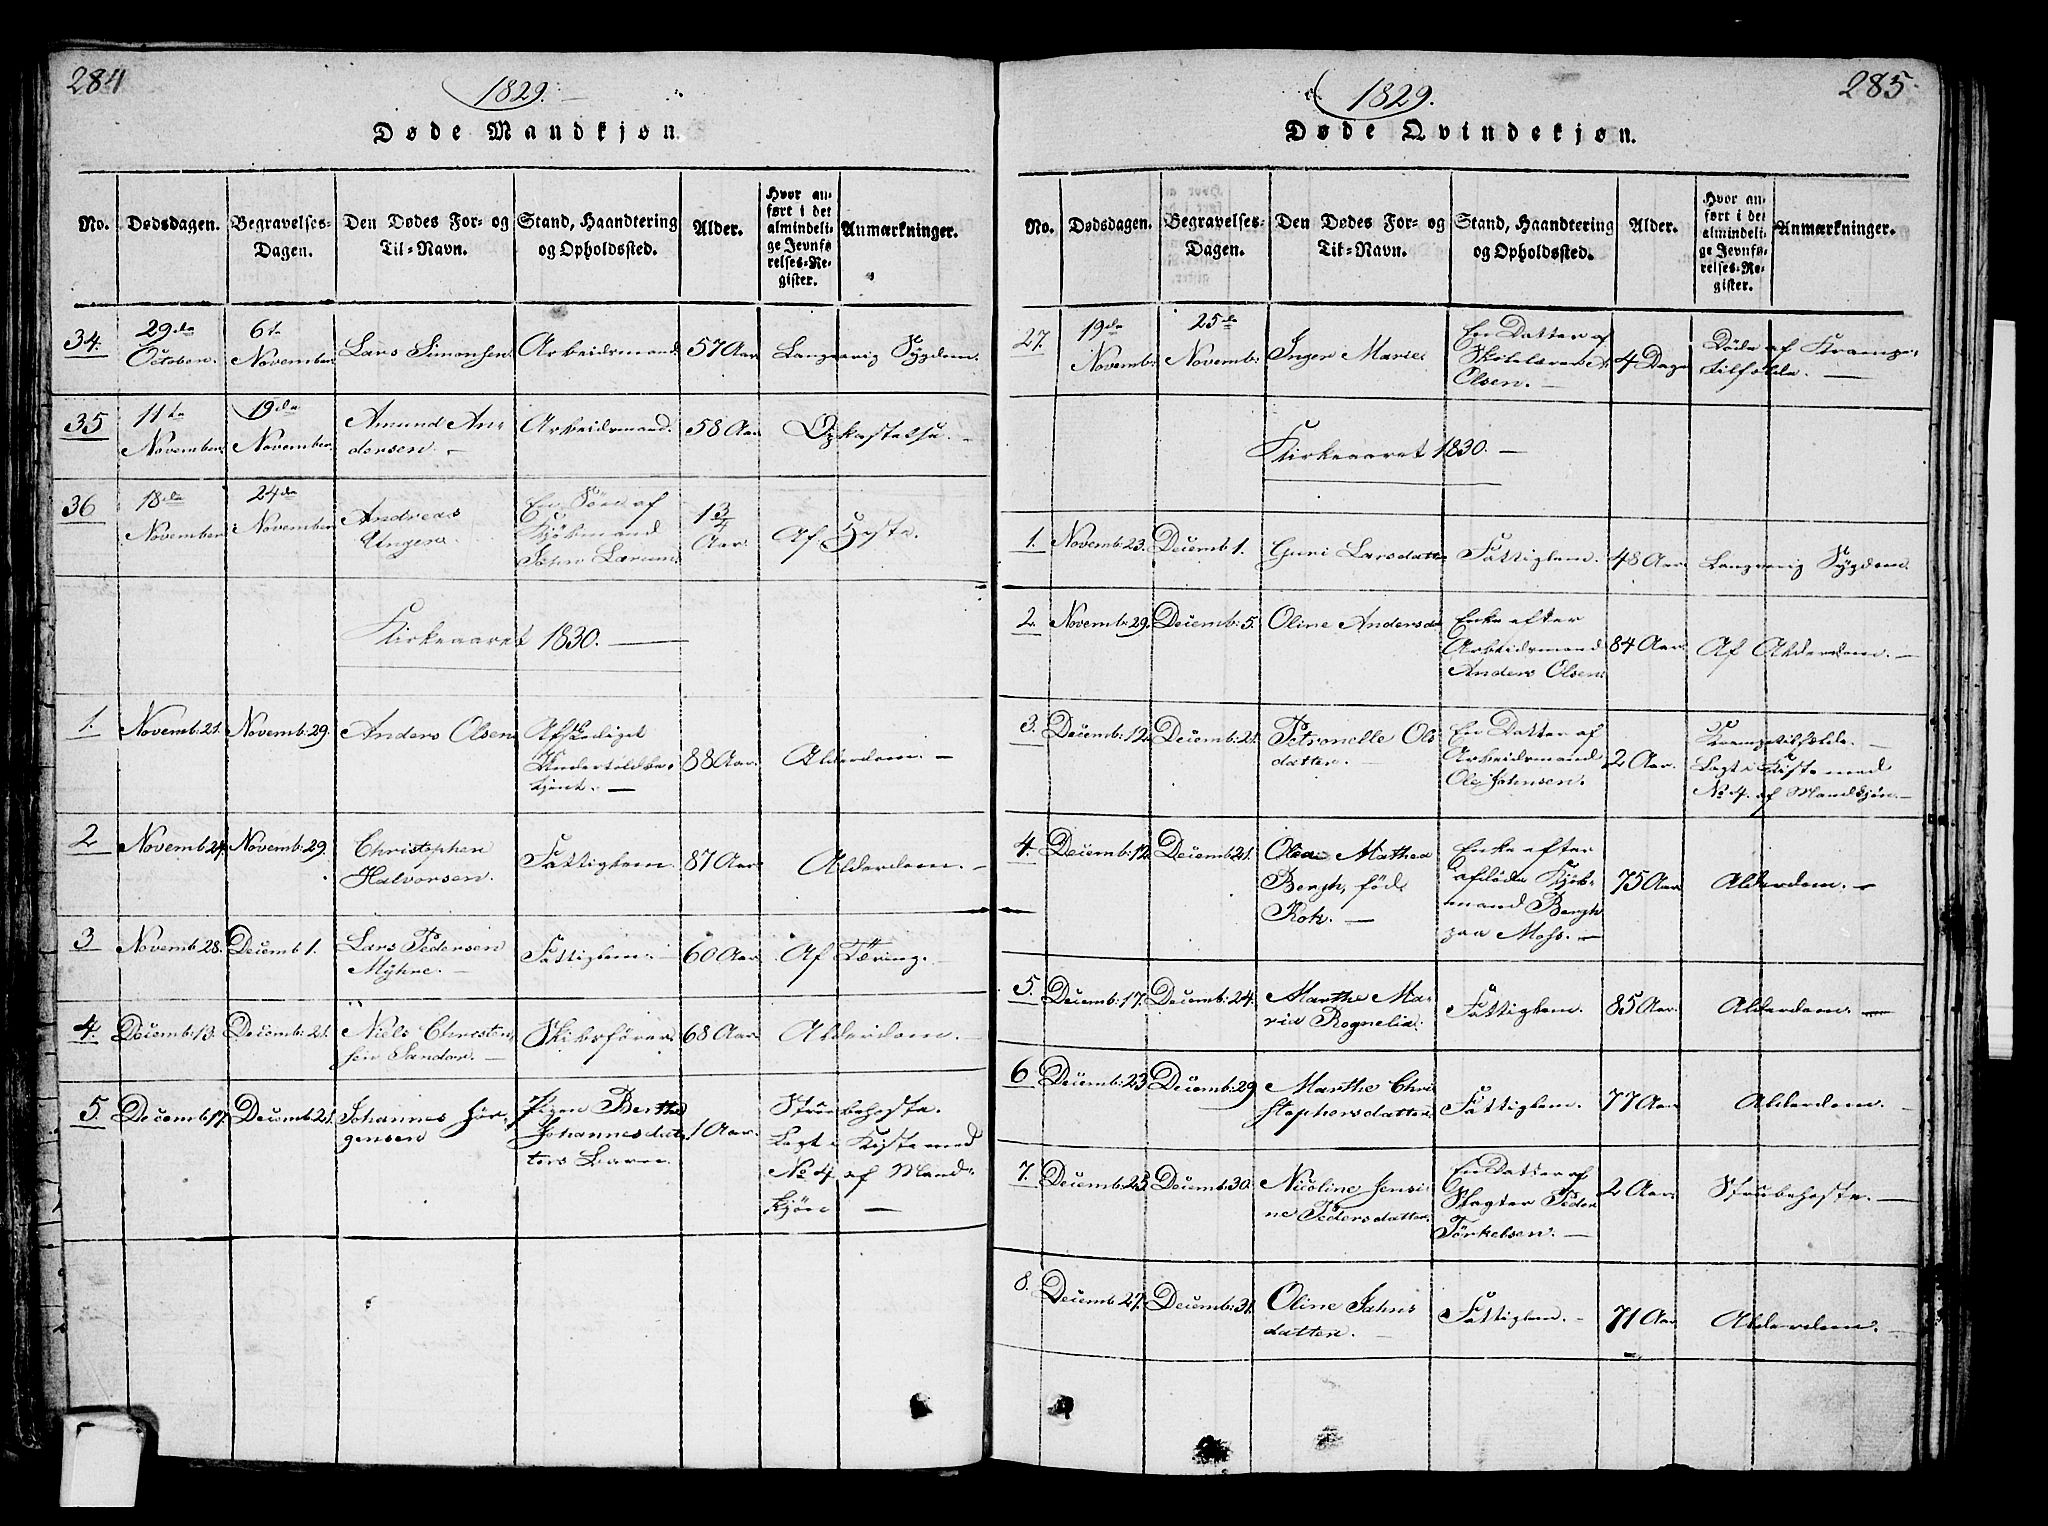 284
1829.
Døde Mandkjøn.
No. Dødsdagen. Begravelses-Dagen. Den Dødes For- og Til-Navn. Stand, Haandtering og Opholdssted. Alder. Hvor anført i det almindelige Jevnførelses-Register. Anmærkninger.
34. 29de October. 6te November. Lars Simonsen Arbeidsmand. 57 Aar. Langvarig Sygdom.
35 11te November. 19de November. Amund Andersen. Arbeidsmand. 58 Aar. Opkastelse.
36 18de November 24de November Andreas Unger. En Søn af Kjøbmand John Larum. 1 3/4 Aar. Af Hoste.
Kirkeaaret 1830.
1. Novemb: 21. Novemb: 29. Anders Olsen Afskediget Undertoldbetjent. 88 Aar. Alderdom.
2 Novemb: 24. Novemb: 29. Christopher Halvorsen. Fattiglem. 87 Aar. Alderdom.
3 Novemb: 28. Decemb 1. Lars Pedersen Myhre. Fattiglem. 60 Aar. Af Tæring.
4. Decemb: 13. Decemb: 21. Niels Christensen Sandor. Skibsfører. 68 Aar. Alderdom.
5. Decemb: 17. Decemb: 21. Johannes Jørgensen Pigen Berthe Johannesdatters Barn. 1 Aar. Strubehoste. Lagt i Kiste med No 4 af Mandkjøn
285.
1829.
Døde Qvindekjøn.
No. Dødsdagen. Begravelses-Dagen. Den Dødes For- og Til-Navn. Stand, Haandtering og Opholdssted. Alder. Hvor anført i det almindelige Jevnførelses-Register. Anmærkninger.
27. 19de Novemb: 25de Novemb: Inger Marie En Datter af Olsen. 4 Dage Døde af Krampetilfælde.
Kirkeaaret 1830.
1. Novemb: 23. Decemb: 1. Guri Larsdatter Fattiglem. 48 Aar. Langvarig Sygdom.
2. Novemb: 29. Decemb: 5. Oline Andersda Enke efter Arbeidsmand Anders Olsen. 84 Aar. Af Alderdom.
3. Decemb: 12. Decemb: 21. Petronelle Olsdatter. En Datter af Arbeidsmand Ole Johnsen. 2 Aar. Krampetilfælde. Lagt i Kiste med No 4. af Mandkjøn.
4. Decemb: 12. Decemb: 21. Olea Mathea Bergh, född Kok. Enke efter afdöde Kjöbmand Bergh paa Moss. 75 Aar Alderdom.
5. Decemb: 17. Decemb: 24. Marthe Maria Rognelia. Fattiglem. 85 Aar. Alderdom.
6 Decemb: 23. Decemb: 29 Marthe Christophersdatter. Fattiglem. 77 Aar Alderdom.
7. Decemb: 25. Decemb: 30. Nicoline Jensine Pedersdatter. En Datter af Slagter Peder Törkelsen. 2 Aar. Strubehoste.
8. Decemb: 27. Decemb: 31. Oline Johnsdatter. Fattiglem. 71 Aar Alderdom.